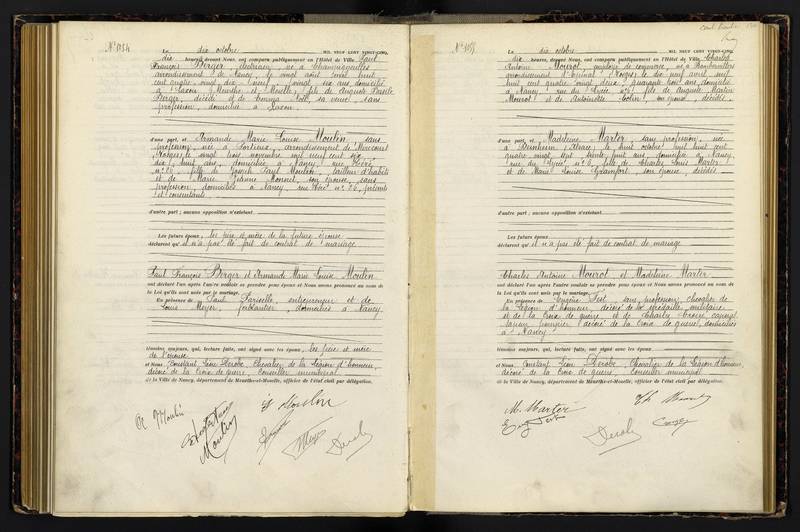 N° 1054
Le dix octobre MIL NEUF CENT VINGT-CINQ,
dix heures, devant Nous, ont comparu publiquement en l'Hôtel de Ville Paul
François Berger, né à
arrondissement de Nancy, le vingt août mil huit
cent quatre vingt dix neuf, vingt six ans, domicilié
à Saxon (Meurthe et Moselle), fils de Auguste
Berger, décédé et de Emma Noël, sa veuve, sans
profession, domiciliée à Saxon
d'une part, et Armande Marie Louise Moulin, sans
profession, née à arrondissement de Mirecourt
(Vosges), le vingt trois novembre mil neuf cent six,
dix huit ans, domiciliée à Nancy, rue
fille de Joseph Paul Moulin, tailleur d'habits
et de Marie Jeanne son épouse, sans
profession, domiciliés à Nancy présents
et consentants
d'autre part ; aucune opposition n'existant.
Les futurs époux, les père et mère de la future épouse
déclarent qu'il n'a pas été fait de contrat de mariage
Paul François Berger et Armande Marie Louise Moulin
ont déclaré l'un après l'autre vouloir se prendre pour époux et Nous avons prononcé au nom de
la Loi qu'ils sont unis par le mariage.
En présence de Paul entrepreneur et de
Louis Meyer, ferblantier, domiciliés à Nancy
témoins majeurs, qui, lecture faite, ont signé avec les époux, les père et mère
de l'épouse
et Nous, Constant Léon Chevalier de la Légion d'honneur,
décoré de la Croix de guerre, Conseiller municipal
de la Ville de Nancy, département de Meurthe-et-Moselle, officier de l'état civil par délégation.
Moulin
Moulin
Moulin
N° 1055
Le dix octobre MIL NEUF CENT VINGT-CINQ,
dix heures, devant Nous, ont comparu publiquement en l'Hôtel de Ville Charles
Antoine Mourot, employé de commerce, né à
arrondissement d'Epinal (Vosges), le dix neuf avril mil
huit cent quatre vingt deux, quarante trois ans, domicilié
à Nancy, rue du Lycée n° 6, fils de Auguste Martin
Mourot et de Antoinette son épouse, décédés
d'une part, et Madeleine Marter, sans profession, née
à (Alsace), le huit octobre mil huit cent
quatre vingt trente ans, domiciliée à Nancy,
rue du Lycée n° 6, fille de Charles Louis Marter
et de Marie Louise son épouse, décédés
d'autre part ; aucune opposition n'existant.
Les futurs époux
déclarent qu'il n'a pas été fait de contrat de mariage
Charles Antoine Mourot et Madeleine Marter
ont déclaré l'un après l'autre vouloir se prendre pour époux et Nous avons prononcé au nom de
la Loi qu'ils sont unis par le mariage.
En présence de Eugène sans profession, chevalier de
la Légion d'honneur, décoré de la Médaille militaire
et de la Croix de guerre et de Charles caporal
sapeur pompier décoré de la Croix de guerre, domiciliés
à Nancy
témoins majeurs, qui, lecture faite, ont signé avec les époux
et Nous, Constant Léon Chevalier de la Légion d'honneur,
décoré de la Croix de guerre, Conseiller municipal
de la Ville de Nancy, département de Meurthe-et-Moselle, officier de l'état civil par délégation.
M. Marter